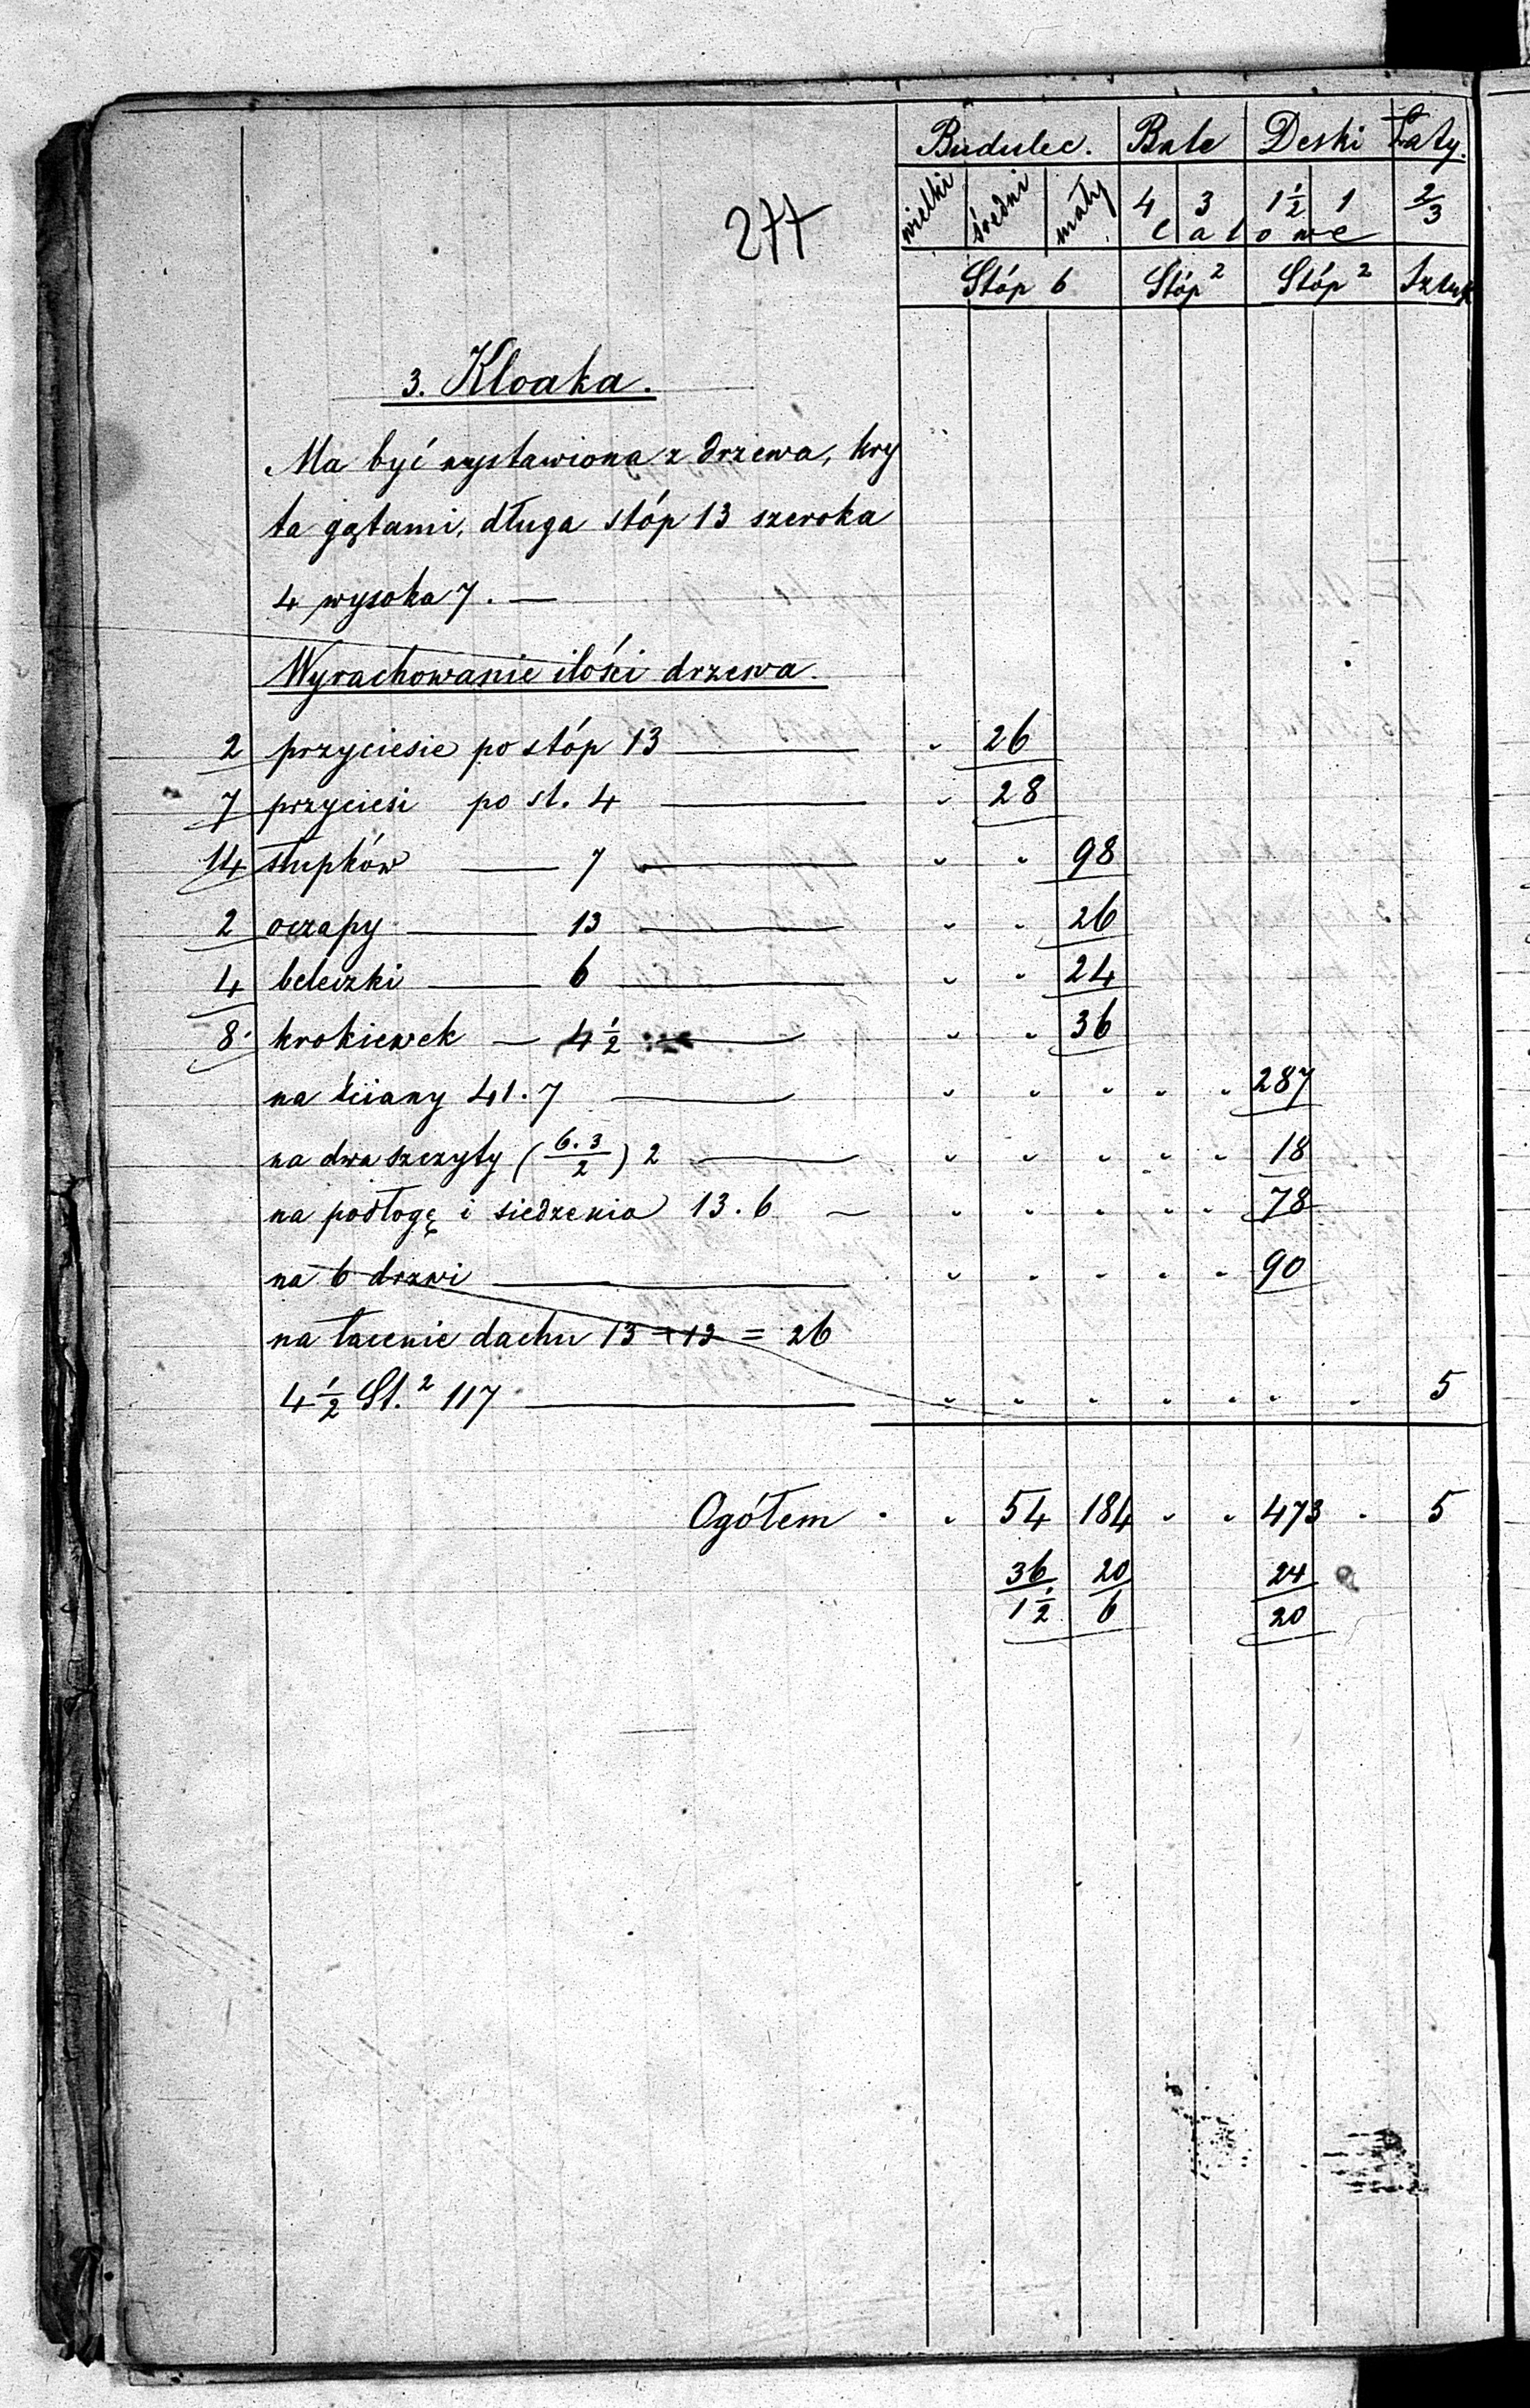 Budulec. Bale Deski Łaty.
wielki średni mały 4 3 1½ 1 2/3
calowe
Stóp b Stóp² Stóp² Sztuk
277
3. Kloaka.
Ma być wystawiona z drzewa, kry
ta gątami, długa stóp 13 szeroka
4 wysoka 7. —
Wyrachowanie ilości drzewa.
2 przyciesie po stóp 13 — " 26
7 przyciesi po st. 4 — " 28
14 słupków — 7 — " " 98
2 oczapy — 13 — " " 26
4 beleczki — 6 — " " 24
8 krokiewek — 4½ — " " 36
na ściany 41.7 — " " " " " 287
na dwa szczyty (6.3/2) 2 — " " " " " 18
na podłogę i siedzenia 13.6 — " " " " " 78
na 6 drzwi — " " " " " 90
na łacenie dachu 13 + 13 = 26
4½ St.² 117 — " " " " " " " 5
Ogółem " " 54 184 " " 473 " 5
36 20 24
1½ 6 20